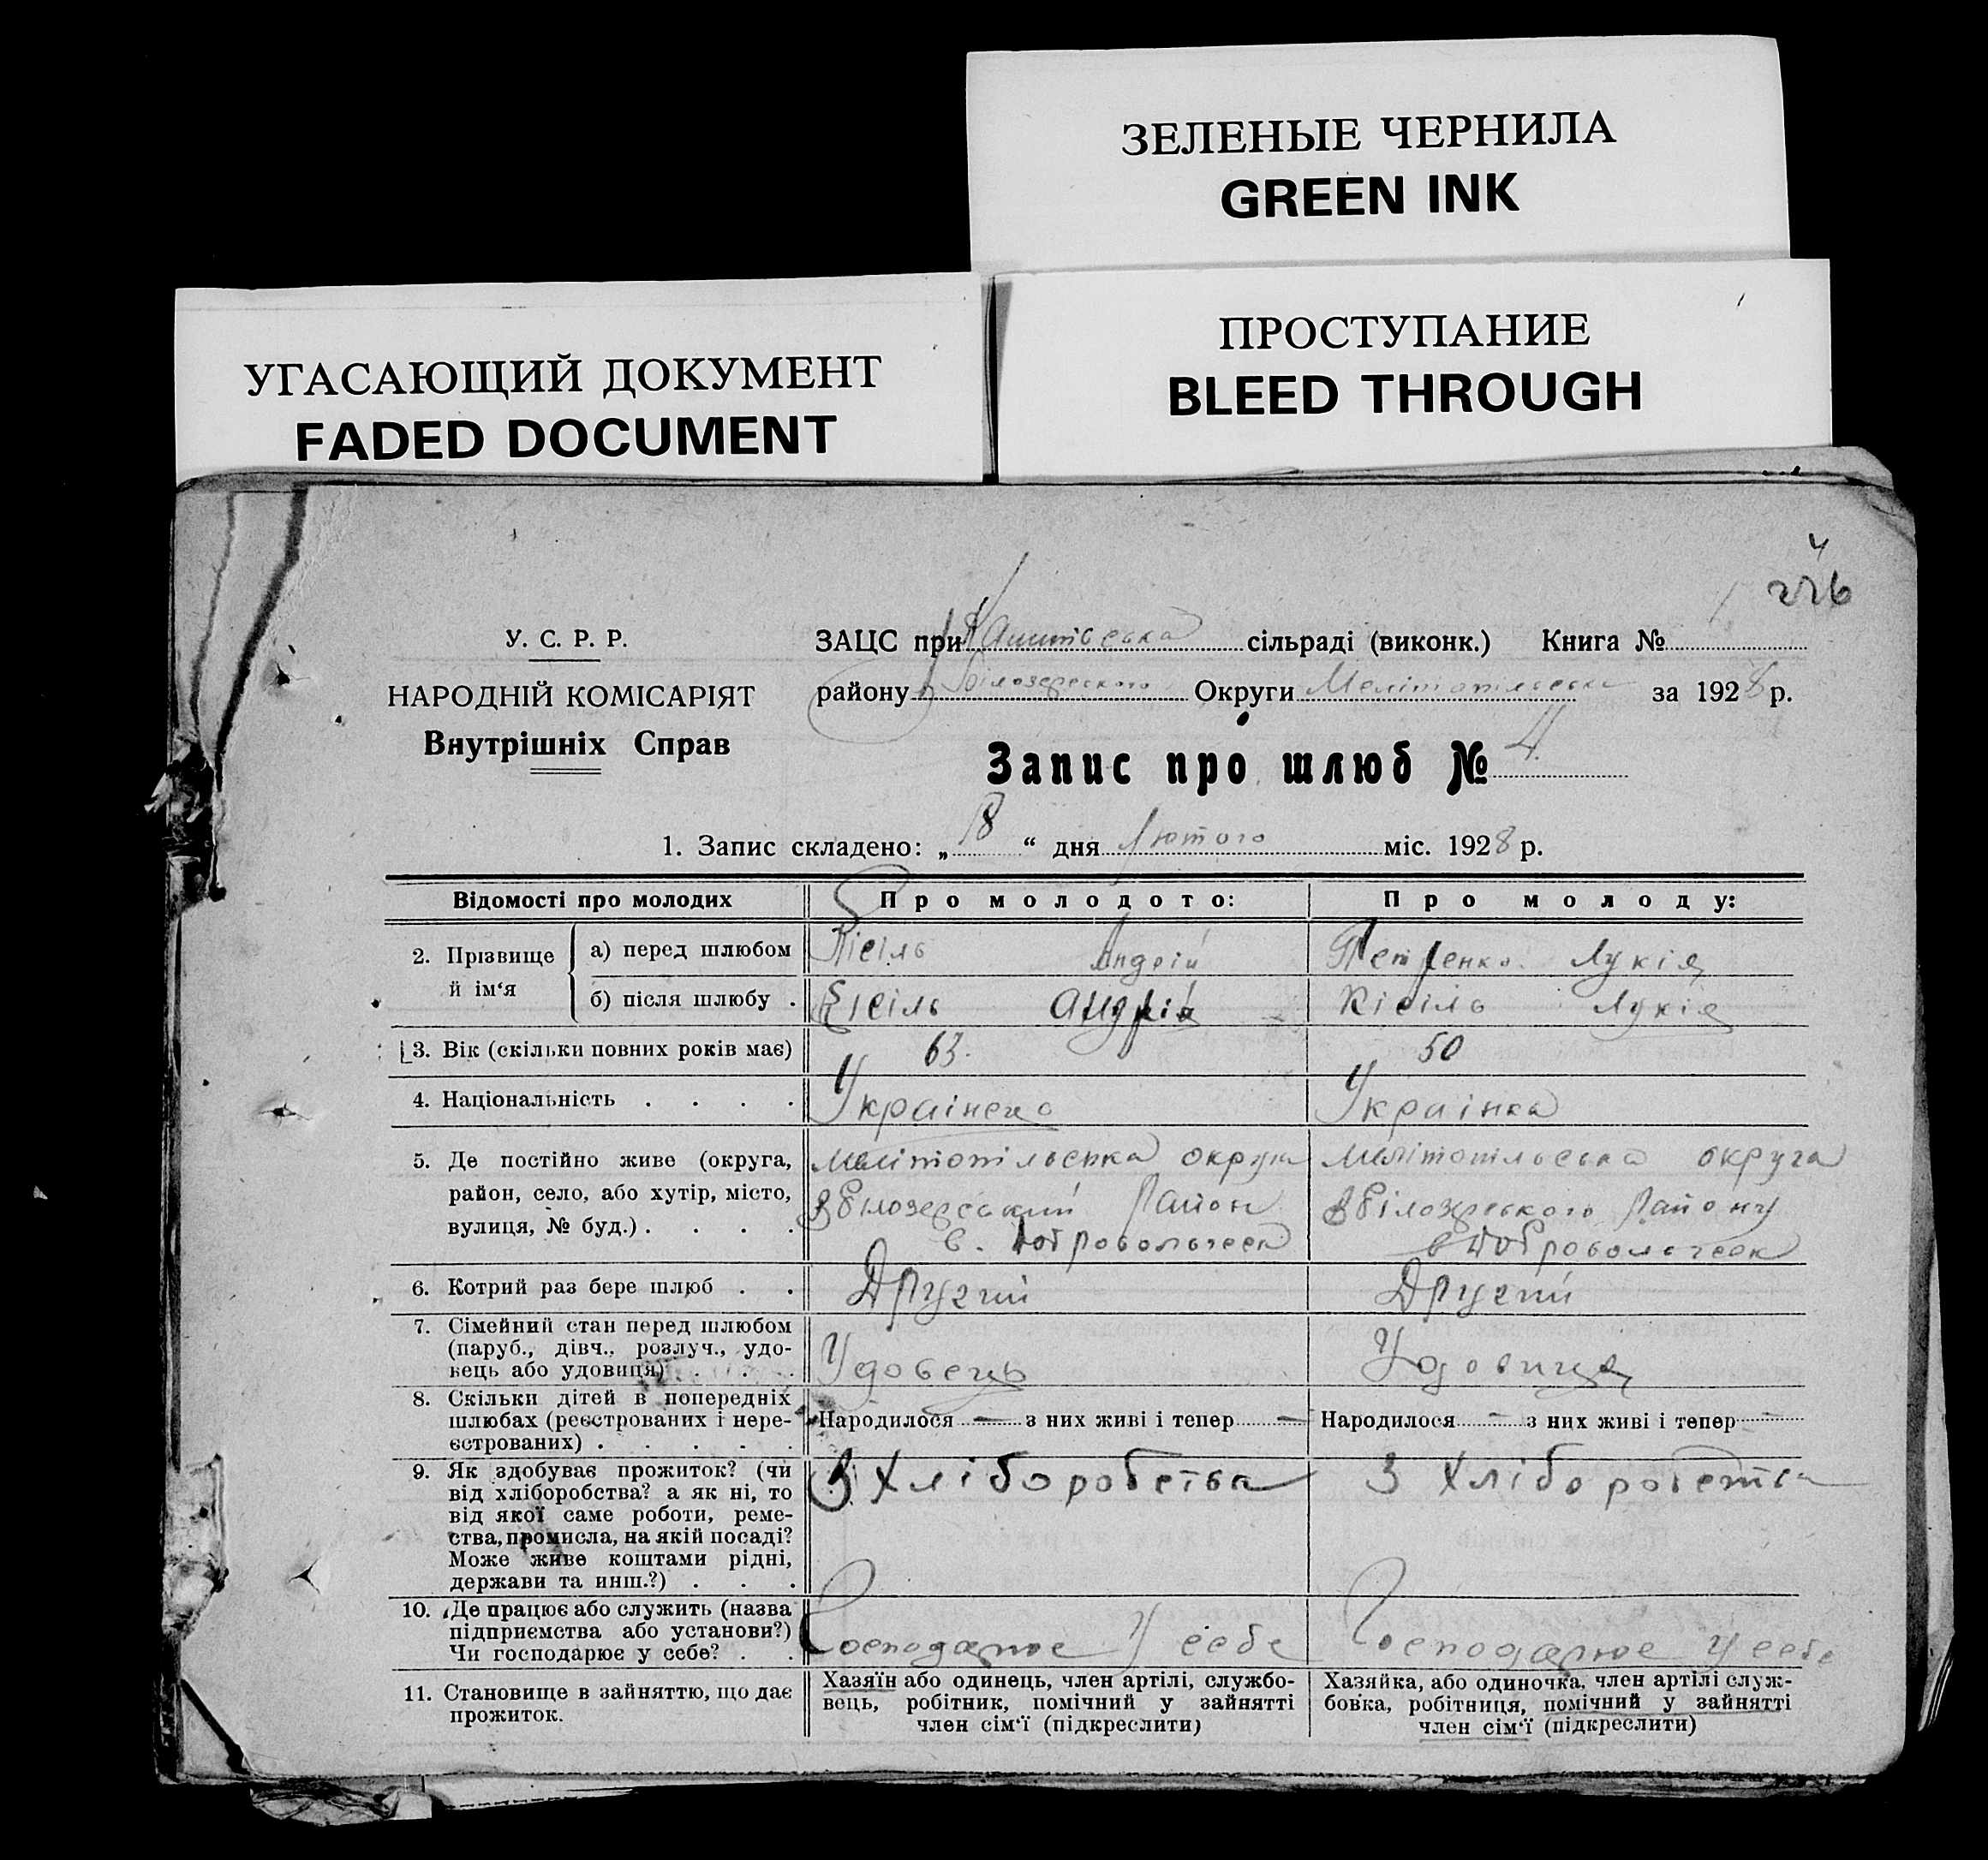 ЗЕЛЕНЫЕ ЧЕРНИЛА
GREEN INK
ПРОСТУПАНИЕ
BLEED THROUGH
УГАСАЮЩИЙ ДОКУМЕНТ
FADED DOCUMENT
4
226
У. С. Р. Р.
НАРОДНІЙ КОМІСАРІЯТ
Внутрішніх Справ
ЗАЦС при сільраді (виконк.) Книга № 1
району Білозерського Округи Мелітопільська за 1928 р.
Запис про шлюб № 4.
1. Запис складено: „ 18 “ дня Лютого міс. 1928 р.
Відомості про молодих
Про молодого:
Про молоду:
2. Прізвище й ім‘я
а) перед шлюбом
Кісіль Андрій
Петренко Лукія
б) після шлюбу .
Кісіль Андрій
Кісіль Лукія
3. Вік (скільки повних років має)
63.
50
4. Національність . . . .
Українець
Українка
5. Де постійно живе (округа,
район, село, або хутір, місто,
вулиця, № буд.) . . . .
Мелітопільська округа
Вбілозерський Район
с.
Мелітопільська округа
Вбілозерського Району
с
6. Котрий раз бере шлюб . .
Другий
Другий
7. Сімейний стан перед шлюбом
(паруб., дівч., розлуч., удо-
вець або удовиця) . . .
Удовець
Удовиця
8. Скільки дітей в попередніх
шлюбах (реєстрованих і нере-
єстрованих) . . . . .
Народилося — з них живі і тепер —
Народилося — з них живі і тепер —
9. Як здобуває прожиток? (чи
від хліборобства? а як ні, то
від якої саме роботи, реме-
ства, промисла, на якій посаді?
Може живе коштами рідні,
держави та инш.?) . . .
З Хліборобства
З Хліборобства
10. Де працює або служить (назва
підприємства або установи?)
Чи господарює у себе? . .
Господарює У себе
Господарює У себе
11. Становище в зайняттю, що дає
прожиток.
Хазяїн або одинець, член артілі, службо-
вець, робітник, помічний у зайнятті
член сім‘ї (підкреслити)
Хазяйка, або одиночка, член артілі служ-
бовка, робітниця, помічний у зайнятті
член сім‘ї (підкреслити)